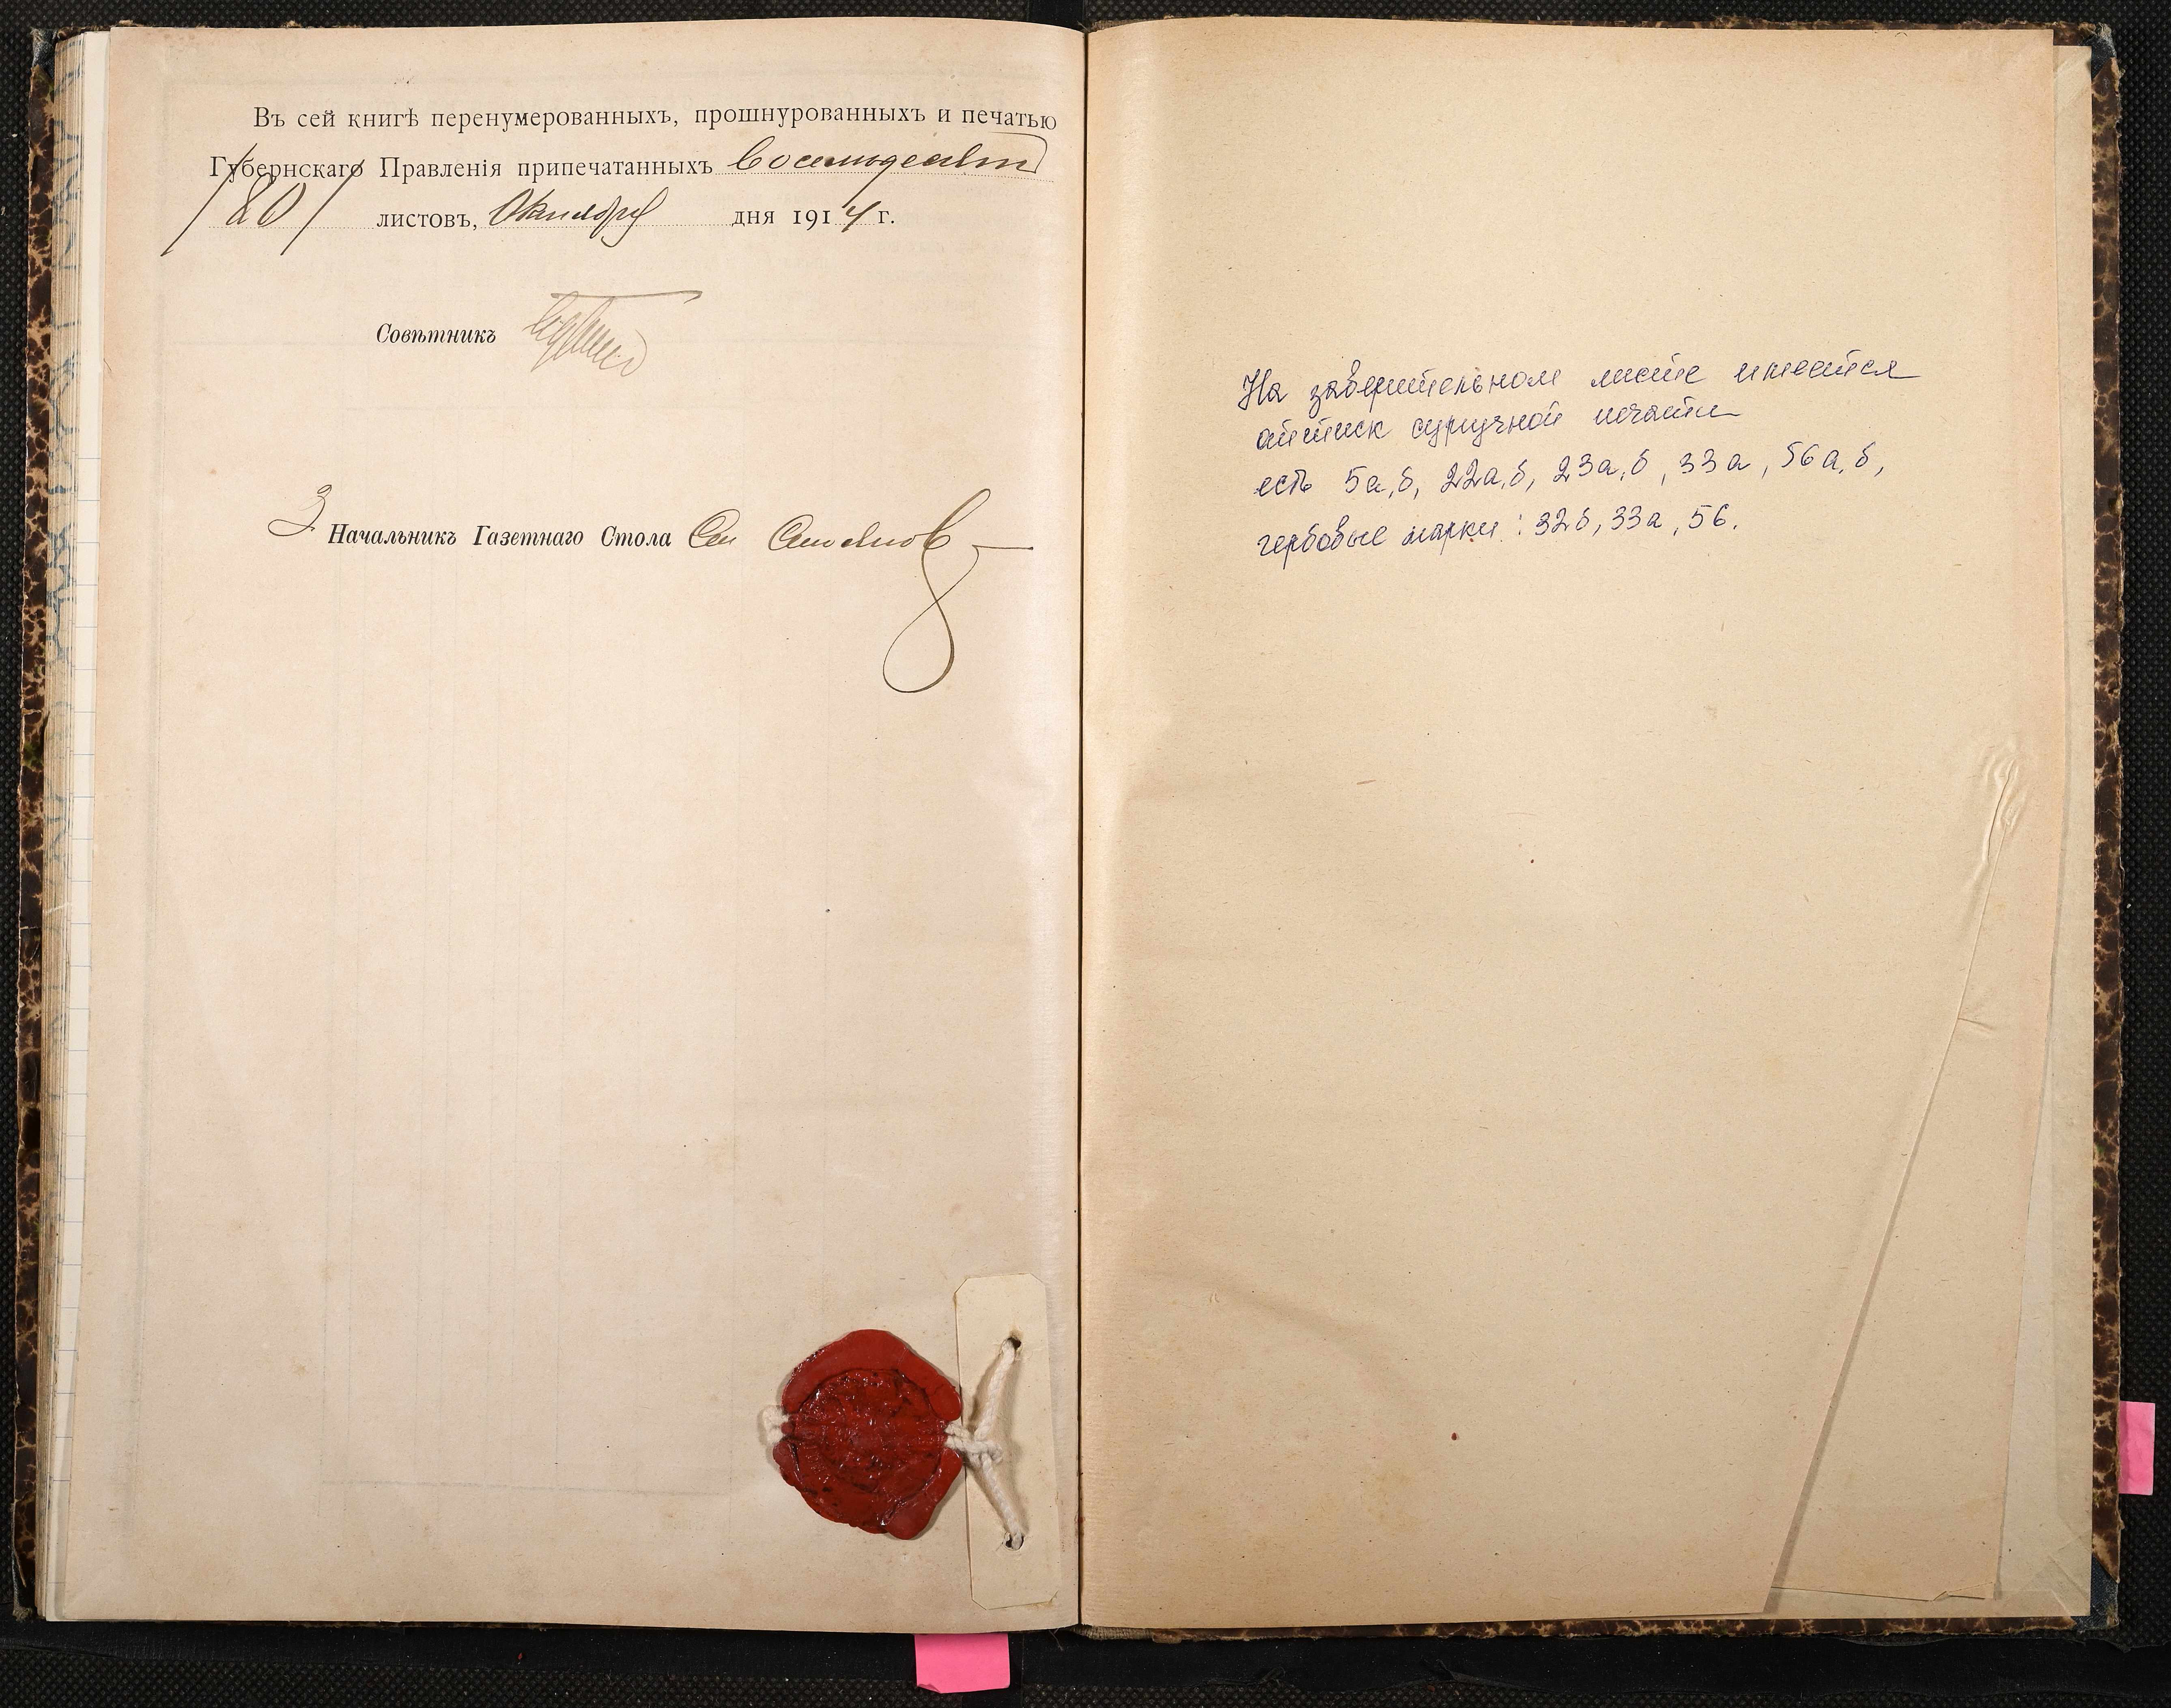 Въ сей книгѣ перенумерованныхъ, прошнурованныхъ и печатью
Губернскаго Правленія припечатанныхъ восемьдесят
/80/ листовъ, Октября дня 1914 г.
Совѣтникъ
З. Начальникъ Газетнаго Стола
На заверительном листе имеется
оттиск сургучной печати
есть 5а,б, 22а,б, 23а,б, 33а, 56а,б,
гербовые марки: 32б, 33а, 56.